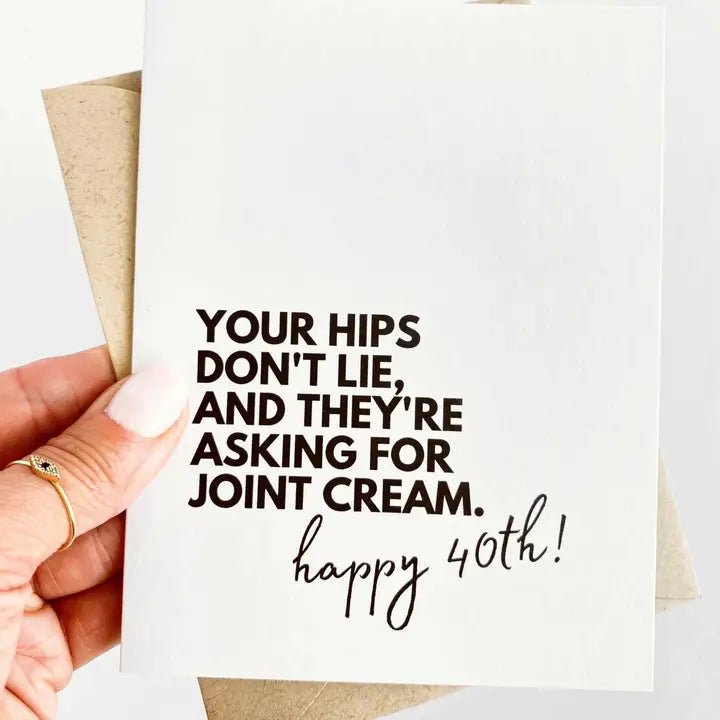 YOUR HIPS
DON'T LIE,
AND THEY'RE
ASKING FOR
JOINT CREAM.
happy 40th!